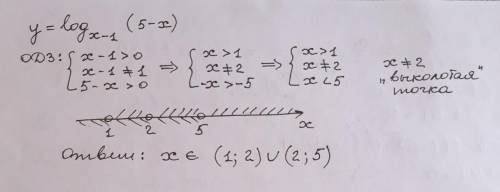 y = log_{x-1} (5-x)
ОДЗ: { x-1>0 ⇒ { x>1 ⇒ { x>1
x-1≠1 x≠2 x≠2 x≠2
5-x>0 -x>-5 x<5 „выколотая“
точка
1 2 5 x
Ответ: x ∈ (1; 2) ∪ (2; 5)